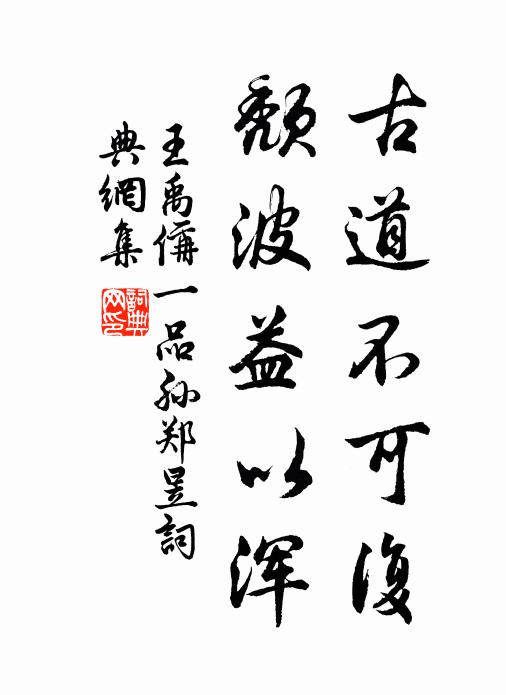 古道不可復
頹波益以浑
王禹偁一品孙郑昱詞
典網集
詞典
网印